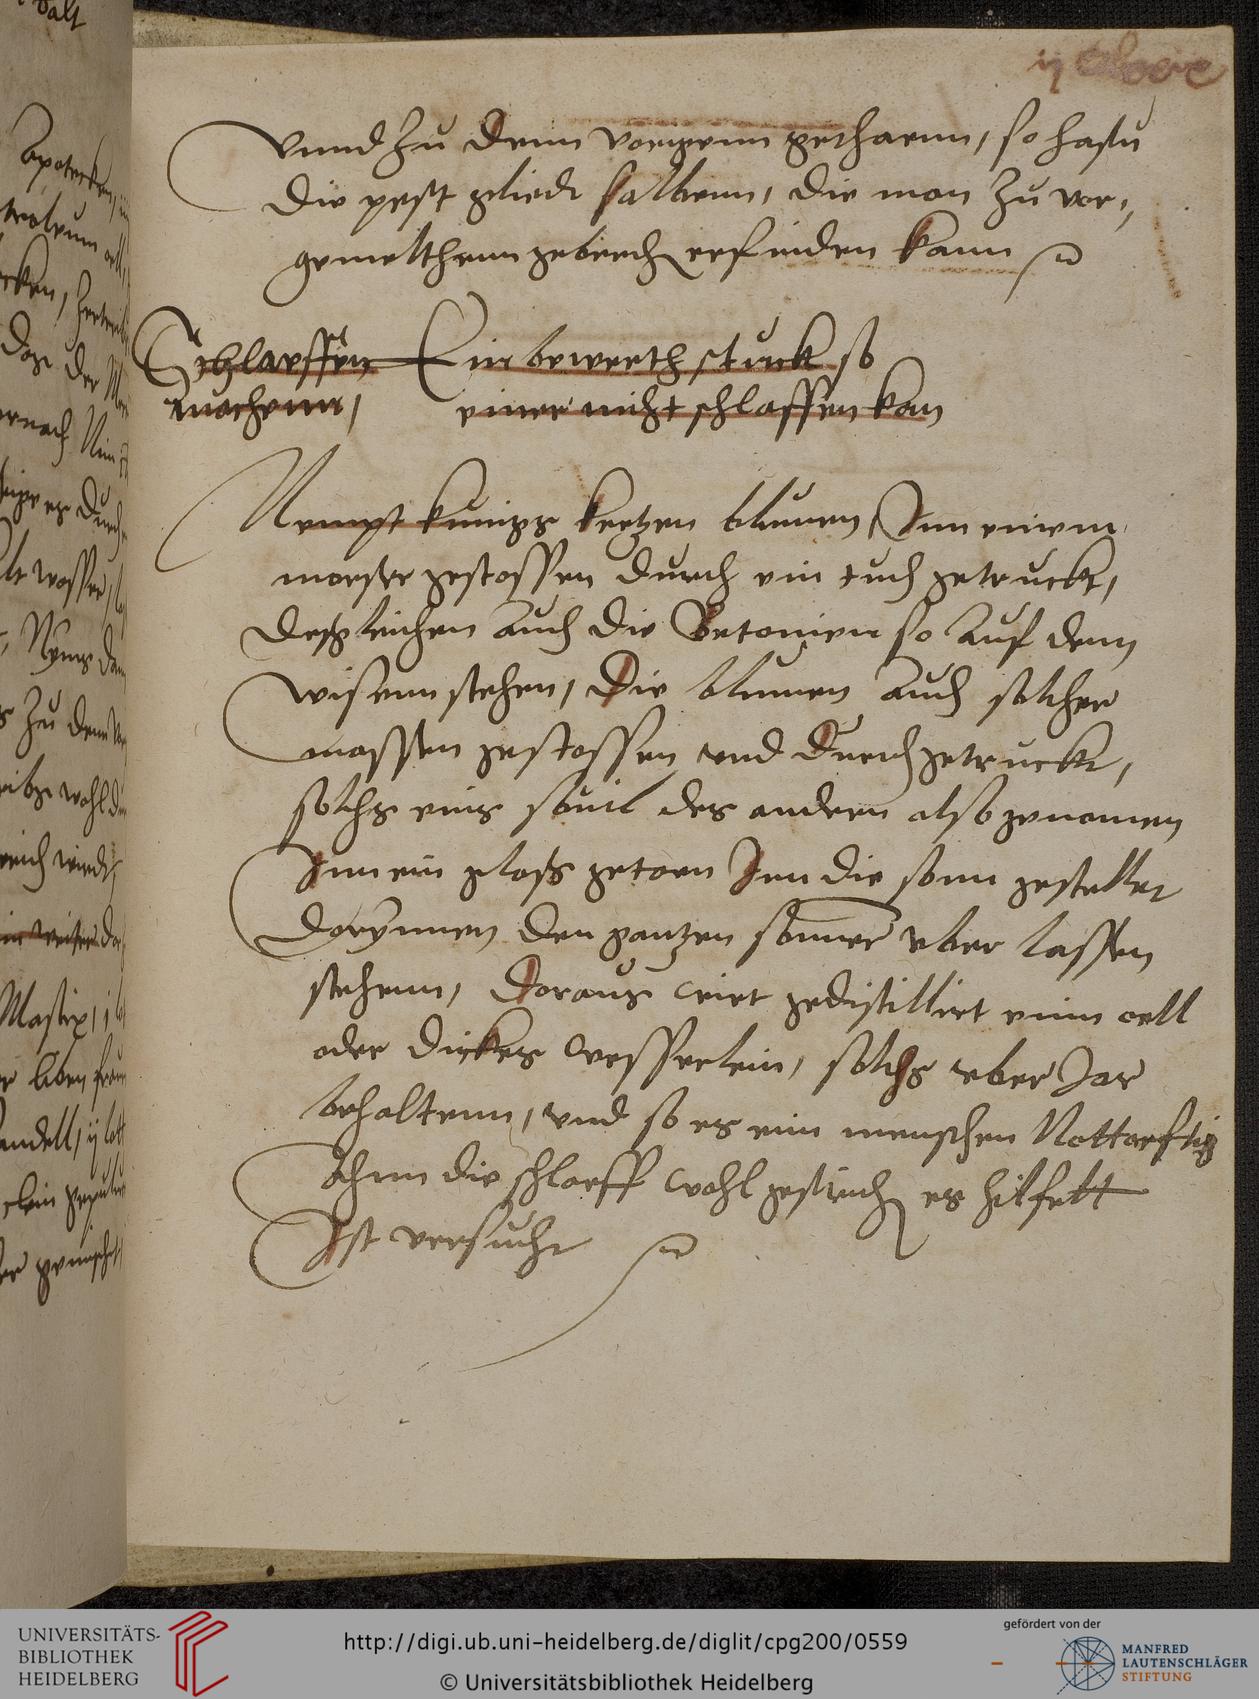 vnnd zu denn vorigenn gethaenn, so hastu
die pest gliedt salbenn, die man zu vor,,
gemelthenn gebrech erfinden kann
Schlaeffen Ein bewerth stuck so
machenn, einer nicht schlaffen kan
Nempt kunigs kertzen blumen, Inn einem
moerser gestossen durch ein tuch getruckt,
deßgleichen auch die Betonien so auf denn
wisenn stehen, die blumen auch solcher
massen gestossen vnd durchgetruckt,
solchs eins souil des andern also genomen
Inn ein glaß getaen Inn die sonn gestellet
darynnen den gantzen sommer vber lassen
stehenn, doraus wirt gedistillirt einn oell
oder dickes wesserlein, solchs vber Jar
behaltenn, vnd so es einn menschen Nottorftig
Ahnn die schlaeff wohl gestrich es hilfett
Ist versucht
UNIVERSITÄTS-
BIBLIOTHEK
HEIDELBERG
http://digi.ub.uni-heidelberg.de/diglit/cpg200/0559
© Universitätsbibliothek Heidelberg
gefördert von der
MANFRED
LAUTENSCHLÄGER
STIFTUNG